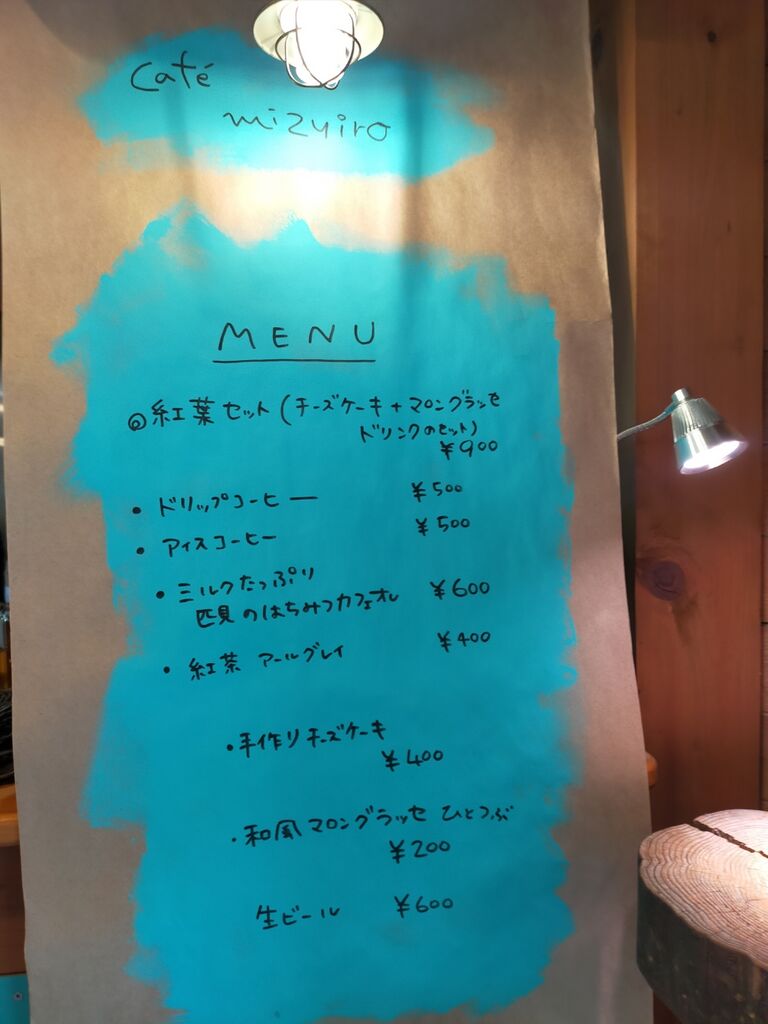 Café
mizuiro
MENU
◎紅葉セット(チーズケーキ+マロングラッセ
ドリンクのセット)
¥900
・ドリップコーヒー ¥500
・アイスコーヒー ¥500
・ミルクたっぷり
匹見のはちみつカフェオレ ¥600
・紅茶 アールグレイ ¥400
・手作りチーズケーキ
¥400
・和風マロングラッセ ひとつぶ
¥200
生ビール ¥600